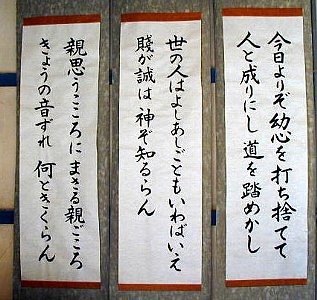 今日よりぞ幼心を打ち捨てて
人と成りにし道を踏めかし
世の人はよしあしごともいわばいえ
賤が誠は神ぞ知るらん
親思うこころにまさる親ごころ
きょうの音ずれ何ときくらん